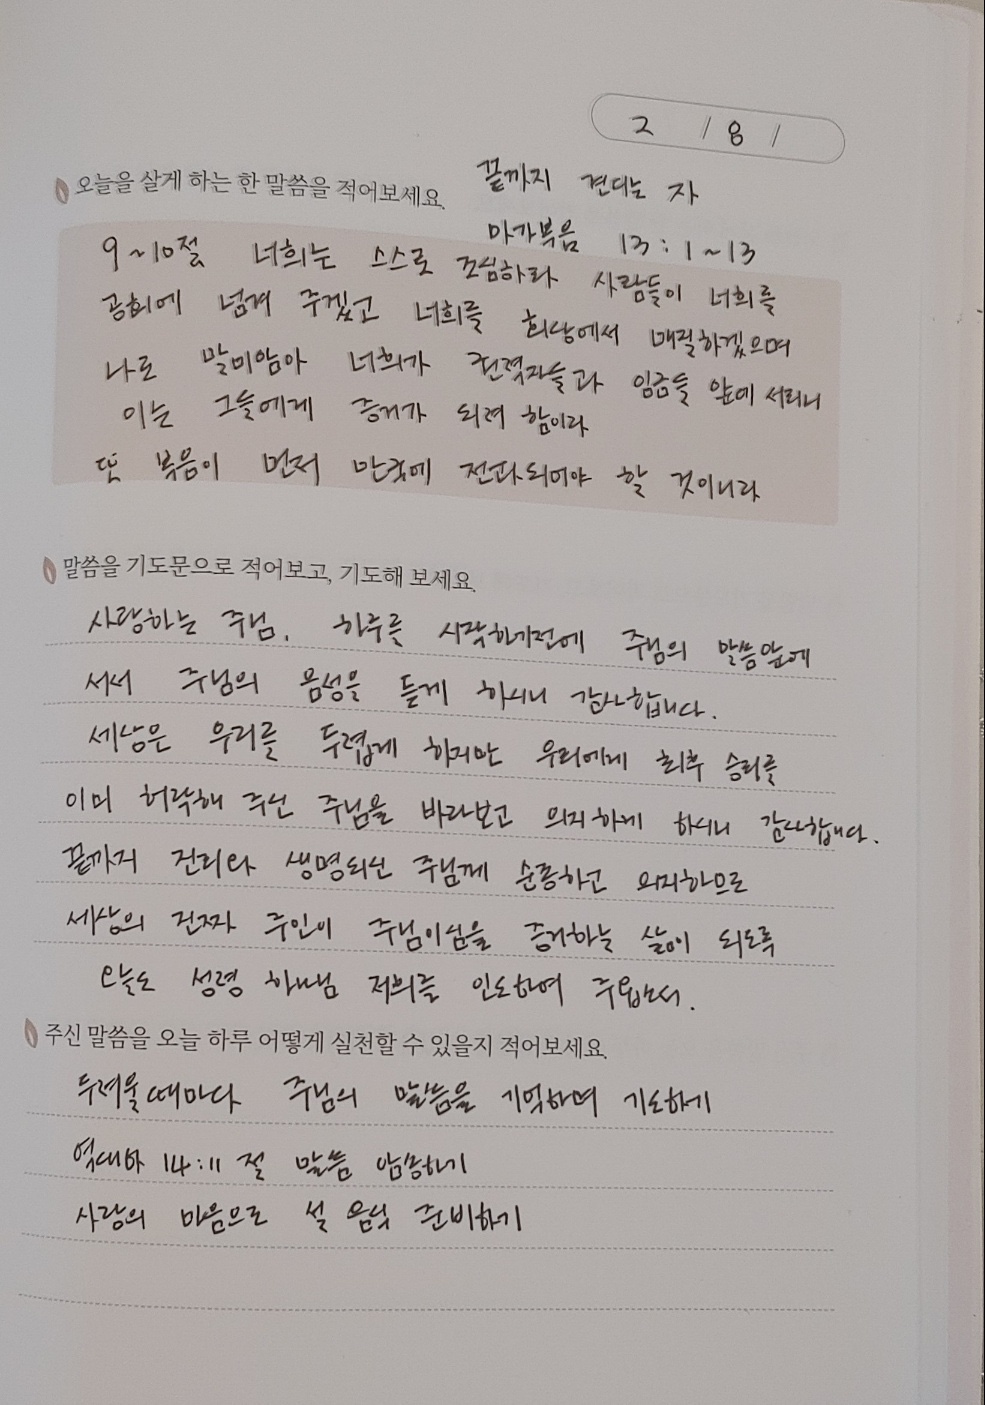 2 / 8 /
오늘을 살게 하는 한 말씀을 적어보세요.
끝까지 견디는 자
마가복음 13 : 1 ~ 13
9~10절 너희는 스스로 조심하라 사람들이 너희를
공회에 넘겨 주겠고 너희를 회당에서 매질하겠으며
나로 말미암아 너희가 권력자들과 임금들 앞에 서리니
이는 그들에게 증거가 되려 함이라
또 복음이 먼저 만국에 전파되어야 할 것이니라
말씀을 기도문으로 적어보고, 기도해 보세요.
사랑하는 주님. 하루를 시작하기전에 주님의 말씀앞에
서서 주님의 음성을 듣게 하시니 감사합니다.
세상은 우리를 두렵게 하지만 우리에게 최후 승리를
이미 허락해 주신 주님을 바라보고 의지하게 하시니 감사합니다.
끝까지 진리와 생명되신 주님께 순종하고 의지하므로
세상의 진짜 주인이 주님이심을 증거하는 삶이 되도록
오늘도 성령 하나님 저희를 인도하여 주옵소서.
주신 말씀을 오늘 하루 어떻게 실천할 수 있을지 적어보세요.
두려울때마다 주님의 말씀을 기억하며 기도하기
역대하 14:11 절 말씀 암송하기
사랑의 마음으로 설 음식 준비하기